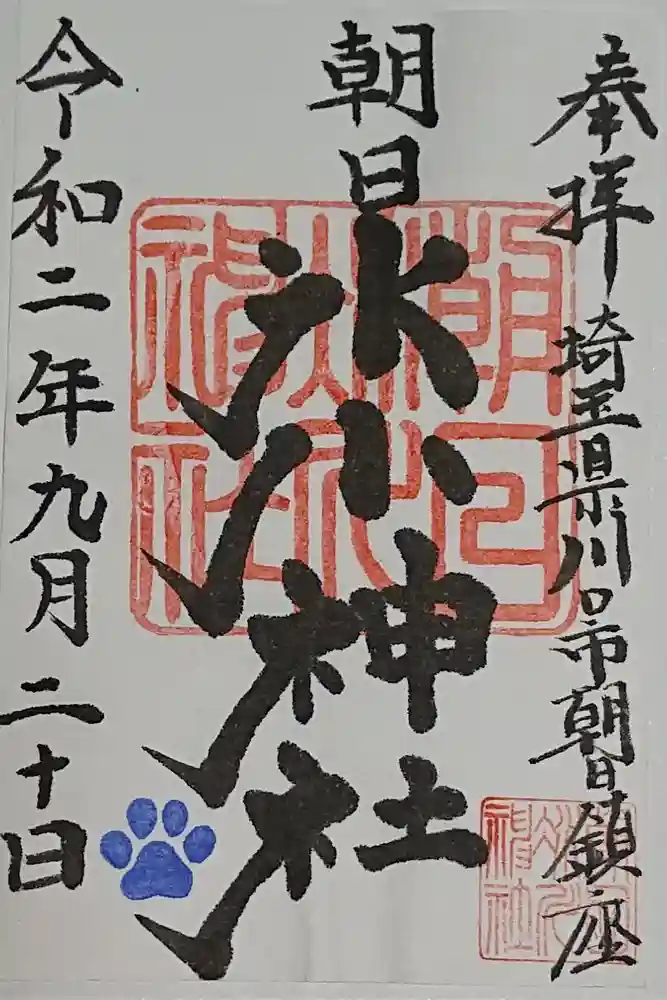 奉拝
埼玉県川口市朝日鎮座
朝日
氷川神社
令和二年九月二十日
朝日氷川神社
氷川神社